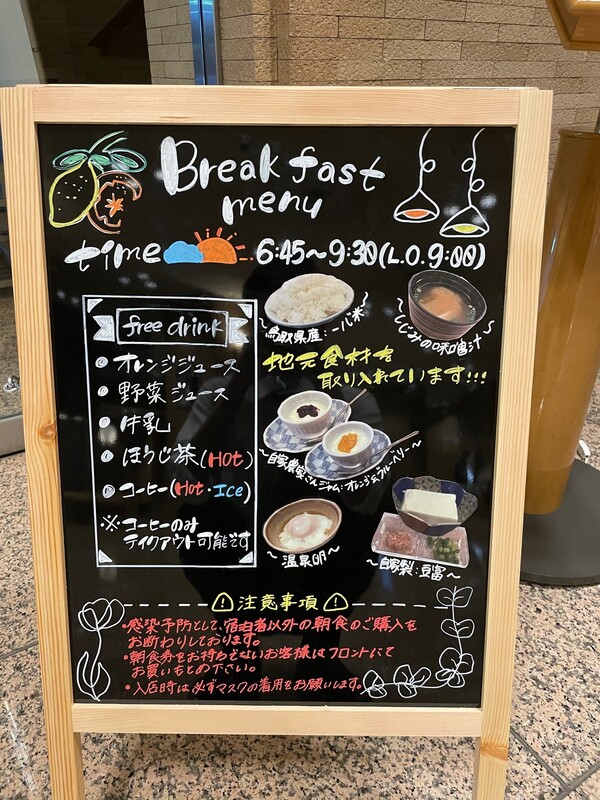 Breakfast
menu
time 6:45~9:30(L.O.9:00)
free drink
・オレンジジュース
・野菜ジュース
・牛乳
・ほうじ茶(Hot)
・コーヒー(Hot・Ice)
※コーヒーのみ
テイクアウト可能です
~鳥取県産:一八米~
~しじみの味噌汁~
地元食材を
取り入れています!!!
~自家農家さんジャム:オレンジ&ブルーベリー~
~温泉卵~
~自家製:豆富~
注意事項
・感染予防として、宿泊者以外の朝食のご購入を
お断りしております。
・朝食券をお持ちでないお客様はフロントにて
お買いもとめ下さい。
・入店時は必ずマスクの着用をお願いします。